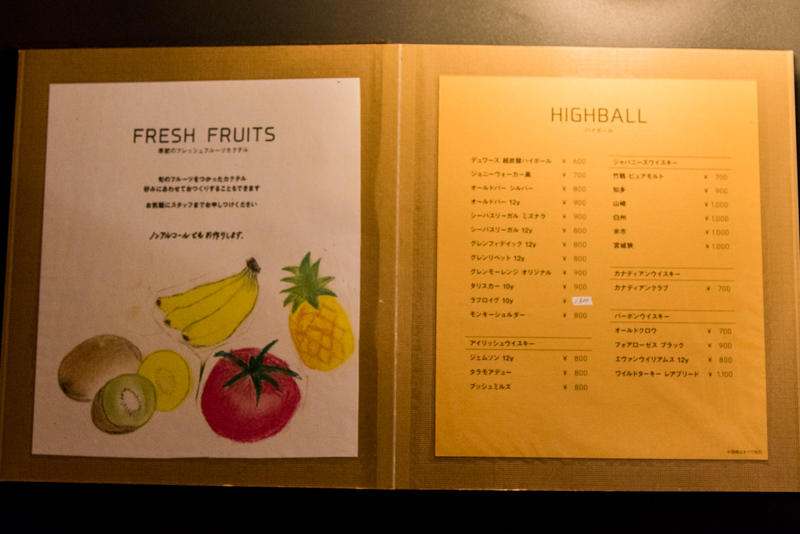 FRESH FRUITS
季節のフレッシュフルーツカクテル
旬のフルーツをつかったカクテル
好みにあわせておつくりすることもできます
お気軽にスタッフまでお申しつけください
ノンアルコールでもお作りします。
HIGHBALL
ハイボール
デュワーズ 超炭酸ハイボール ¥ 600
ジョニーウォーカー黒 ¥ 700
オールドパー シルバー ¥ 800
オールドパー 12y ¥ 900
シーバスリーガル ミズナラ ¥ 900
シーバスリーガル 12y ¥ 800
グレンフィディック 12y ¥ 800
グレンリベット 12y ¥ 800
グレンモーレンジ オリジナル ¥ 900
タリスカー 10y ¥ 900
ラフロイグ 10y ¥
モンキーショルダー ¥ 800
アイリッシュウイスキー
ジェムソン 12y ¥ 800
タラモアデュー ¥ 800
ブッシュミルズ ¥ 800
ジャパニーズウイスキー
竹鶴 ピュアモルト ¥ 700
知多 ¥ 900
山崎 ¥ 1,000
白州 ¥ 1,000
余市 ¥ 1,000
宮城峡 ¥ 1,000
カナディアンウイスキー
カナディアンクラブ ¥ 700
バーボンウイスキー
オールドクロウ ¥ 700
フォアローゼス ブラック ¥ 900
エヴァンウイリアムス 12y ¥ 800
ワイルドターキー レアブリード ¥ 1,100